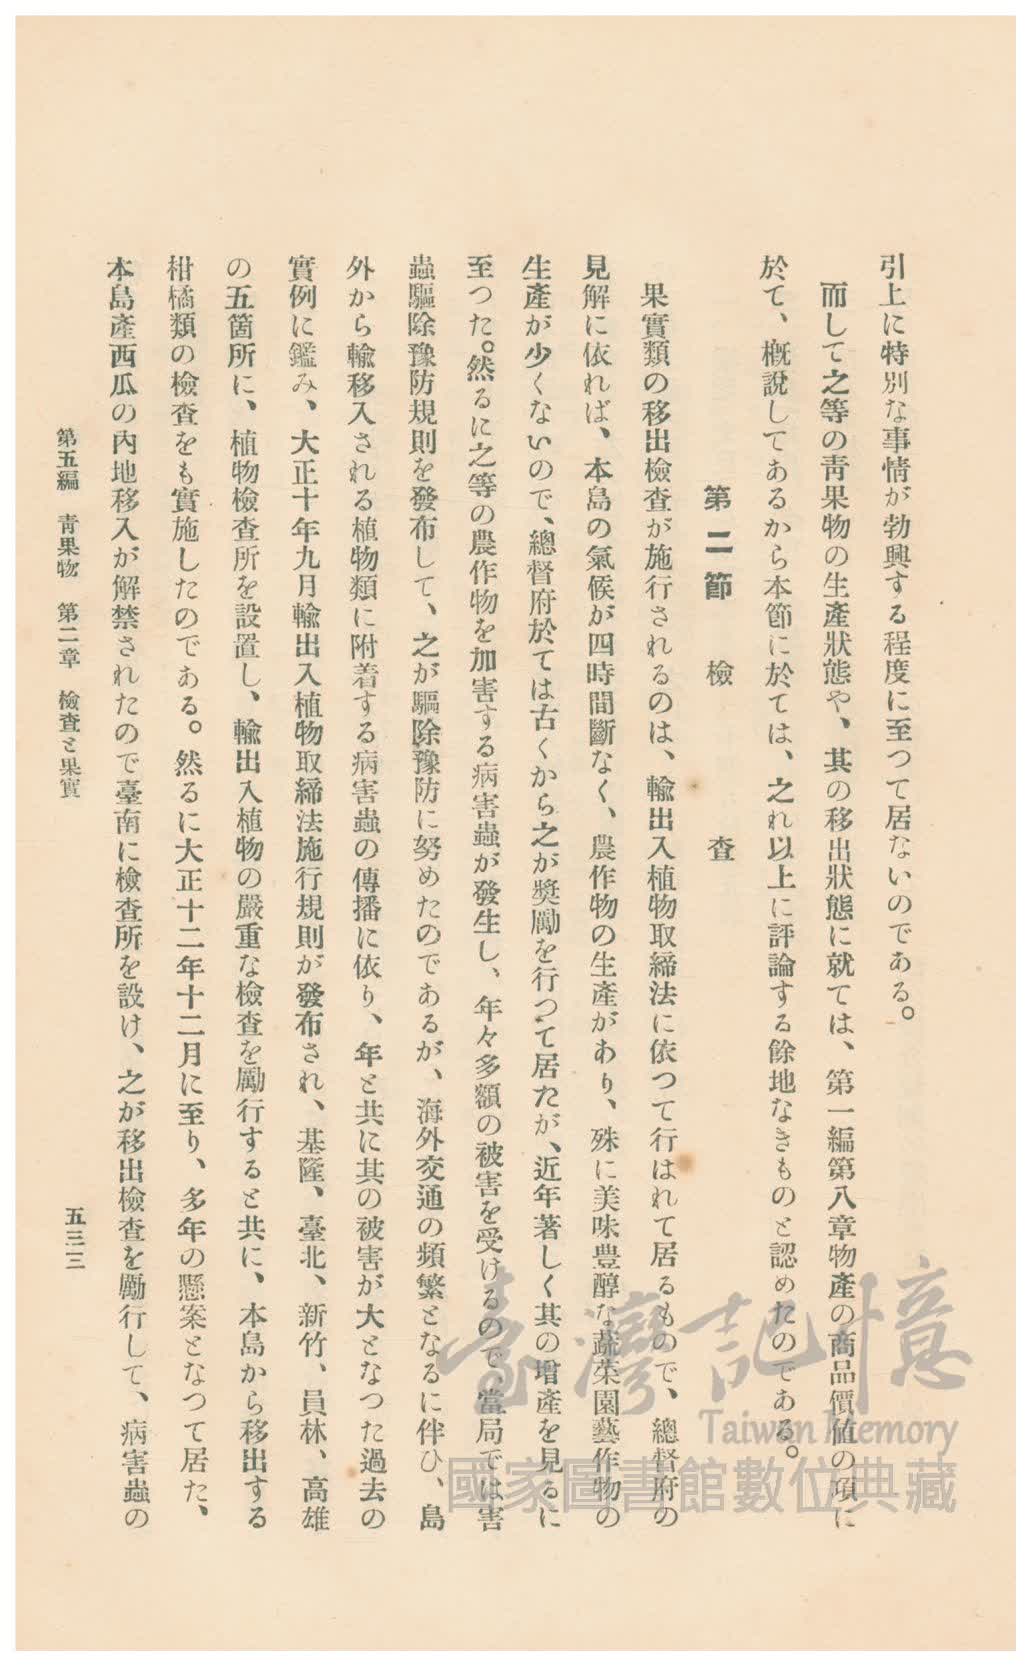 引上に特別な事情が勃興する程度に至つて居ないのである。
而して之等の靑果物の生產狀態や、其の移出狀態に就ては、第一編第八章物產の商品價値の項に
於て、槪說してあるから本節に於ては、之れ以上に評論する餘地なきものと認めたのである。
第二節 檢查
果實類の移出檢查が施行されるのは、輸出入植物取締法に依つて行はれて居るもので、總督府の
見解に依れば、本島の氣候が四時間斷なく、農作物の生產があり、殊に美味豊醇な蔬菜園藝作物の
生產が少くないので、總督府於ては古くから之が奬勵を行つて居たが、近年著しく其の增產を見るに
至つた。然るに之等の農作物を加害する病害蟲が發生し、年々多額の被害を受けるので、當局では害
蟲驅除豫防規則を發布して、之が驅除豫防に努めたのであるが、海外交通の頻繁となるに伴ひ、島
外から輸移入される植物類に附着する病害蟲の傳播に依り、年と共に其の被害が大となつた過去の
實例に鑑み、大正十年九月輸出入植物取締法施行規則が發布され、基隆、臺北、新竹、員林、高雄
の五箇所に、植物檢查所を設置し、輸出入植物の嚴重な檢查を勵行すると共に、本島から移出する
柑橘類の檢查をも實施したのである。然るに大正十二年十二月に至り、多年の懸案となつて居た、
本島產西瓜の內地移入が解禁されたので臺南に檢查所を設け、之が移出檢查を勵行して、病害蟲の
第五編 靑果物 第二章 檢查と果實
五三三
臺灣記憶
Taiwan Memory
國家圖書館數位典藏